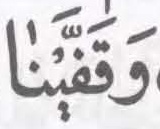 وَقَفَّيْنَا